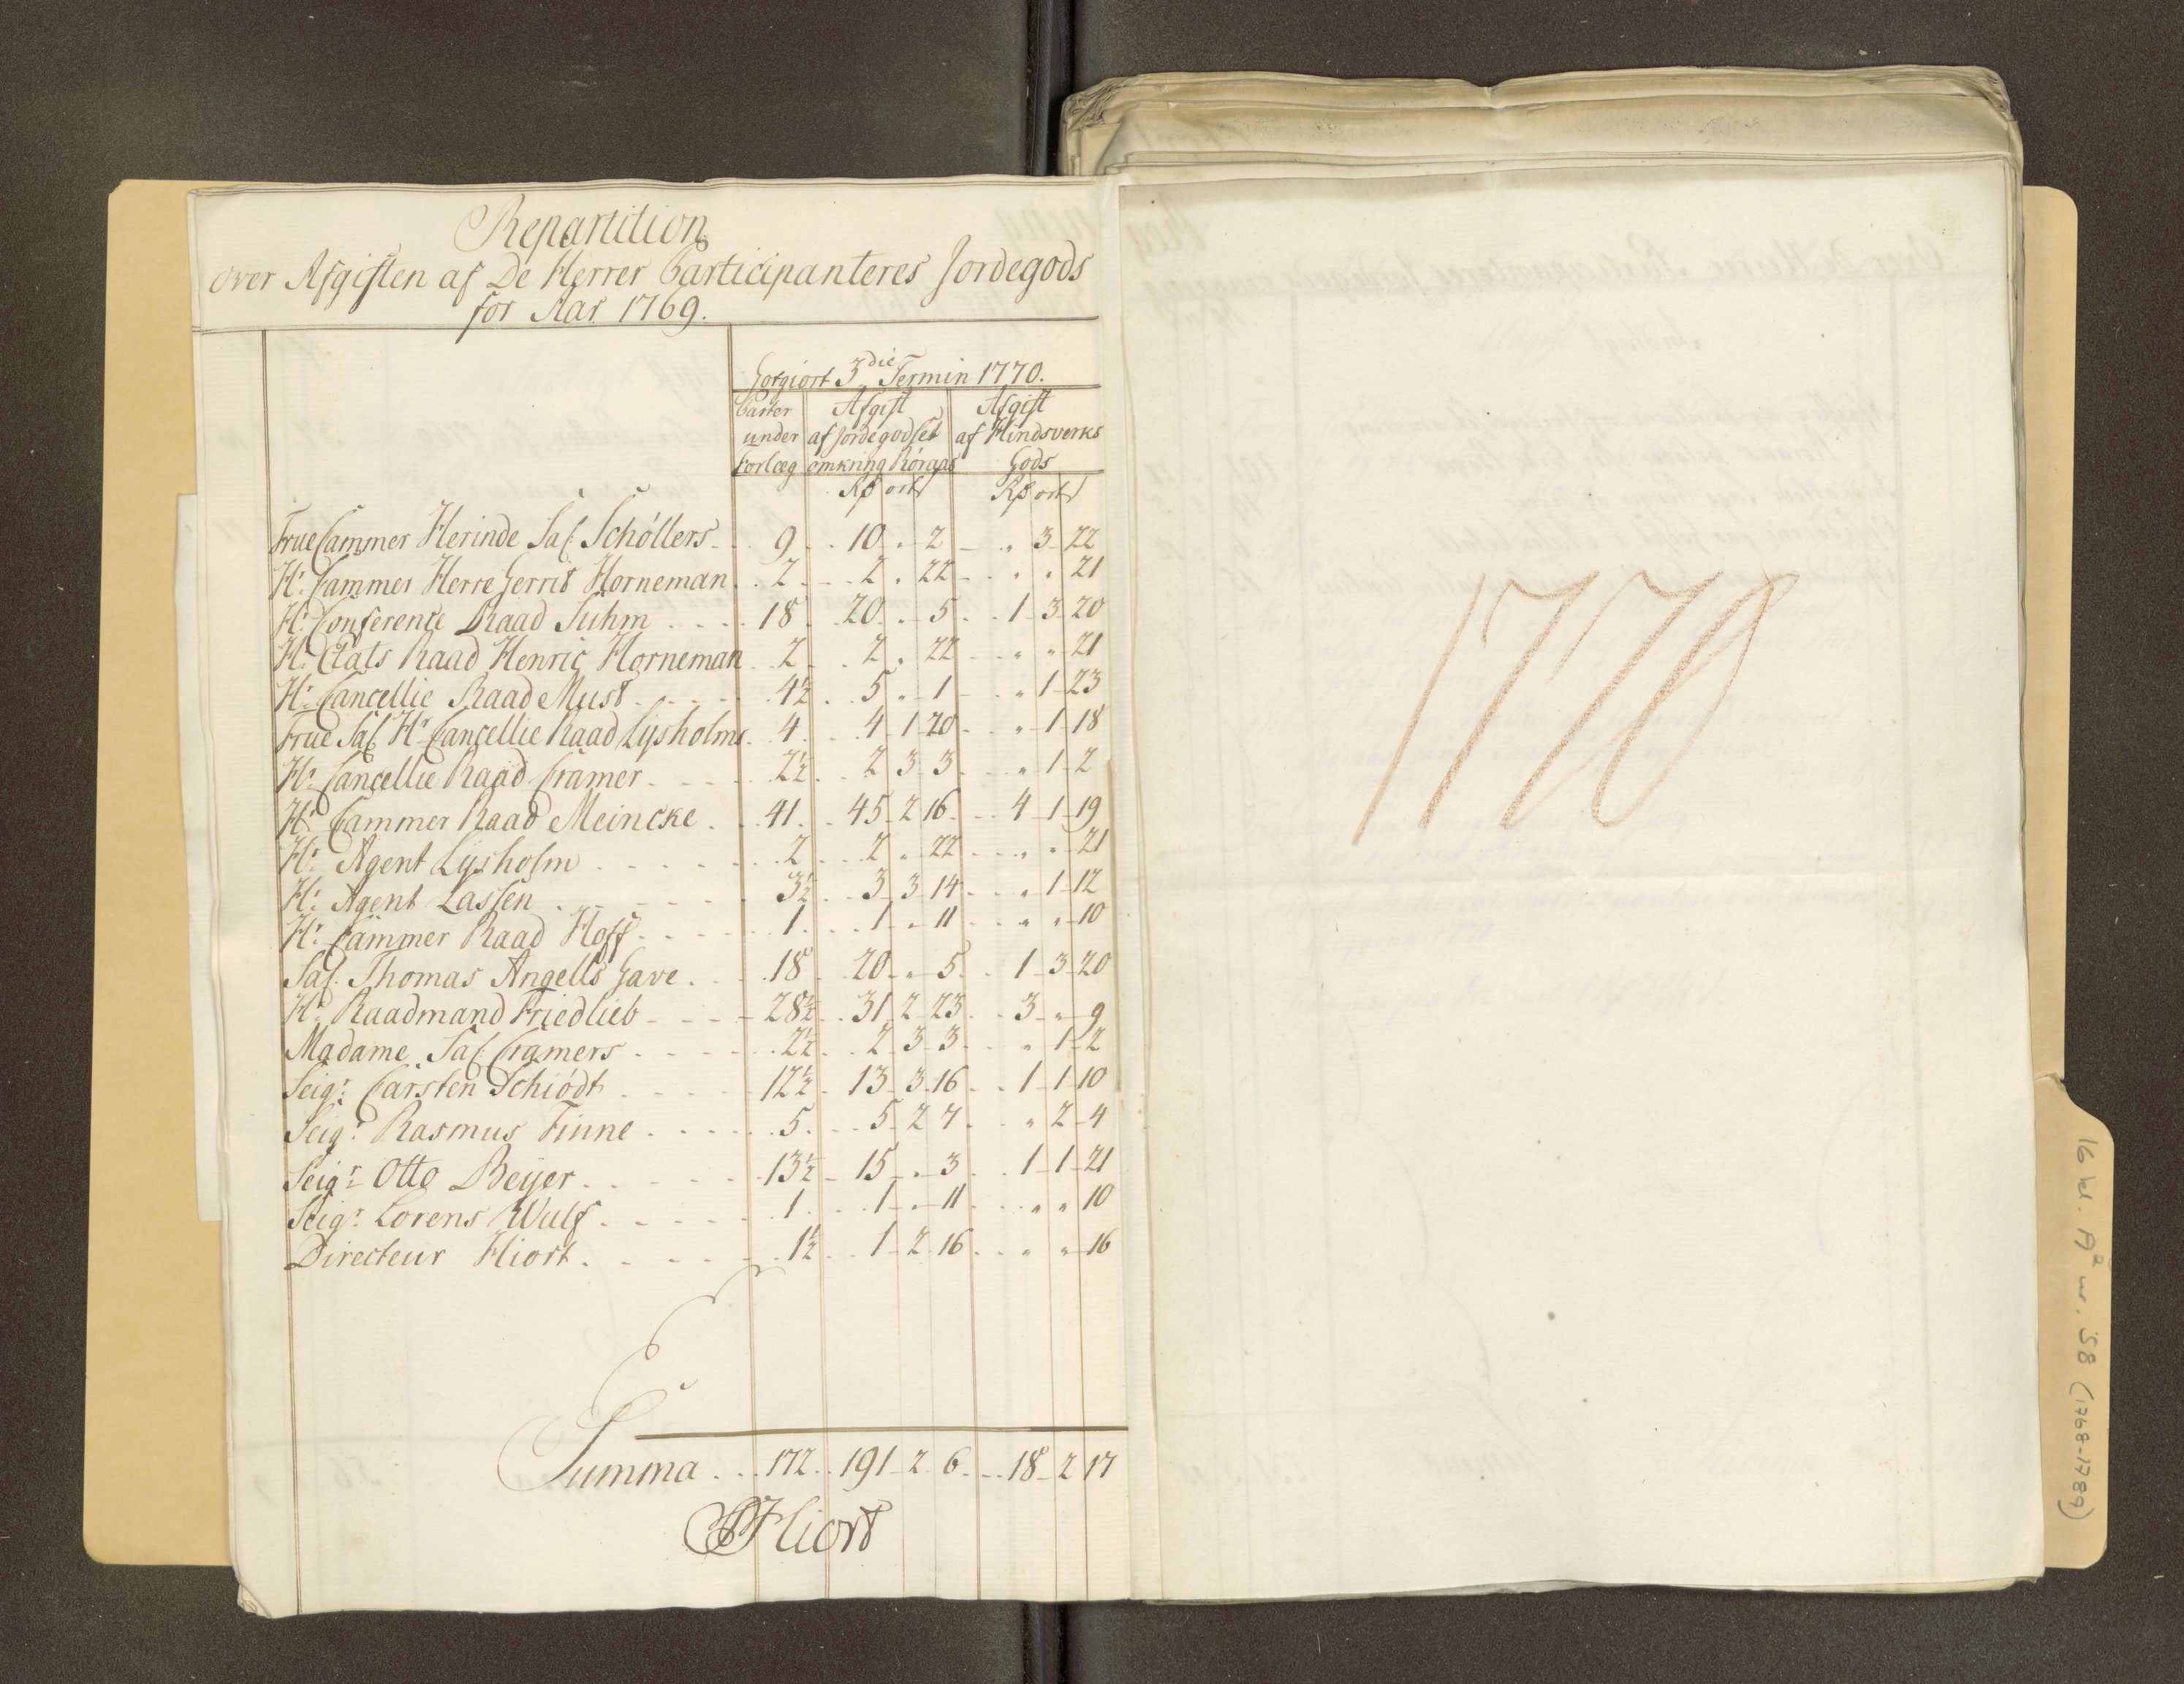 Repartition
over Afgiften af De Herrer Participanteres Jordegods
for Aar 1769.
Godgiort 3die Termin 1770.
Parter under Forlæg | Afgift af Jordegodset omkring Röraas | Afgift af Hindsverks Gods
Rd ort ß | Rd ort ß
Frue Cammer Herinde Sal. Schöllers 9 10 " 2 " 3 22
Hr. Cammer Herre Gerrit Horneman 2 2 " 22 " " 21
Hr. Conferentz Raad Suhm 18 20 " 5 1 3 20
Hr. Etats Raad Henric Horneman 2 2 " 22 " " 21
Hr. Cancellie Raad Must 4½ 5 " 1 " 1 23
Frue Sal. Hr. Cancellie Raad Lysholms 4 4 1 20 " 1 18
Hr. Cancellie Raad Cramer 2½ 2 3 3 " 1 2
Hr. Cammer Raad Meincke 41 45 2 16 4 1 19
Hr. Agent Lysholm 2 2 " 22 " " 21
Hr. Agent Lassen 3½ 3 3 14 " 1 12
Hr. Cammer Raad Hoff 1 1 " 11 " " 10
Sal. Thomas Angells Gave 18 20 " 5 1 3 20
Hr. Raadmand Friedlieb 28½ 31 2 23 3 " 9
Madame Sal. Cramers 2½ 2 3 3 " 1 2
Seigr. Carsten Schiödt 12½ 13 3 16 1 1 10
Seigr. Rasmus Finne 5 5 2 7 " 2 4
Seigr. Otto Beyer 13½ 15 " 3 1 1 21
Seigr. Lorens Wulf 1 1 " 11 " " 10
Directeur Hiort 1½ 1 2 16 " " 16
Summa 172 191 2 6 18 2 17
Hiort
1770
16 kl. A2 nr. 58 (1768-1789)